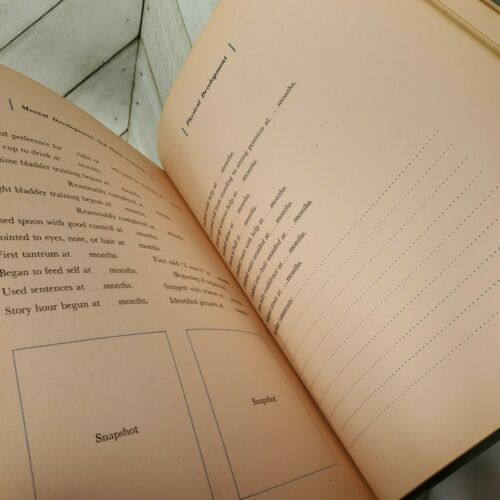 Mental Development and
ed preference for right or
cup to drink at .... months.
time bladder training began at .... months
Reasonably completed at
ght bladder training began at .... months
Reasonably completed at .... months
sed spoon with good control at .... months.
ointed to eyes, nose, or hair at .... months.
First tantrum at .... months.
First said "I won't!" at
Began to feed self at .... months.
(Beginning of
Used sentences at .... months.
Snipped with scissors at
Story hour begun at .... months.
Identified pictures at
Snapshot
Snapshot
Physical Development
with help at .... months.
from standing to sitting position at .... months.
help at .... months.
at .... months.
with help at .... months.
unaided at .... months.
chair unaided at .... months.
with confidence at .... months.
down at .... months.
comments: